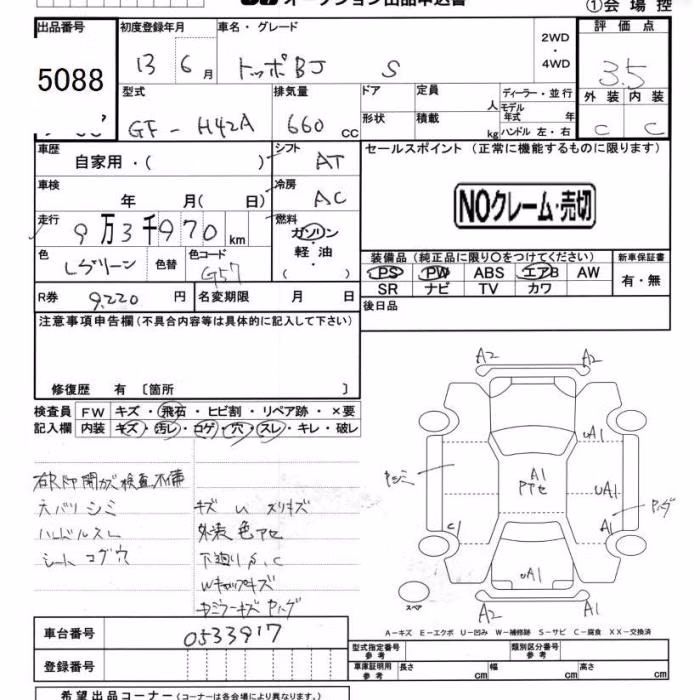 オークション出品申込書
①会場控
出品番号
5088
初度登録年月
13 6月
車名・グレード
トッポBJ S
2WD
・
4WD
評価点
3.5
外装 内装
C C
型式
GF-H42A
排気量
660 cc
ドア
形状
定員
人
積載
kg
ディーラー・並行
モデル年式 年
ハンドル 左・右
車歴
自家用・( )
シフト
AT
車検
年 月( 日)
冷房
AC
走行
9万3千970 km
燃料
ガソリン
・
軽油
・
( )
色
Lグリーン
色替
色コード
G57
R券 9,220 円
名変期限 月 日
セールスポイント (正常に機能するものに限ります)
NOクレーム・売切
装備品 (純正品に限り○をつけてください)
PS PW ABS エアB AW
SR ナビ TV カワ
新車保証書
有・無
後日品
注意事項申告欄 (不具合内容等は具体的に記入して下さい)
修復歴 有 〔箇所 〕
検査員記入欄
FW キズ・飛石・ヒビ割・リペア跡・×要
内装 キズ・汚レ・コゲ・穴・スレ・キレ・破レ
右Rドア開カズ検査不備
天バリシミ
ハンドルスレ
シート コゲ穴
キズ U スリキズ
外装色アセ
下廻りS.C
Wキャップキズ
A2 A2
UA1
A1
UA1
A1
C1
UA1
A2 A1
スペア
A-キズ E-エクボ U-凹み W-補修跡 S-サビ C-腐食 XX-交換済
車台番号
0533917
登録番号
型式指定番号
参考
類別区分番号
参考
車庫証明用
参考
長さ cm
幅 cm
高さ cm
希望出品コーナー (コーナーは各会場により異なります)